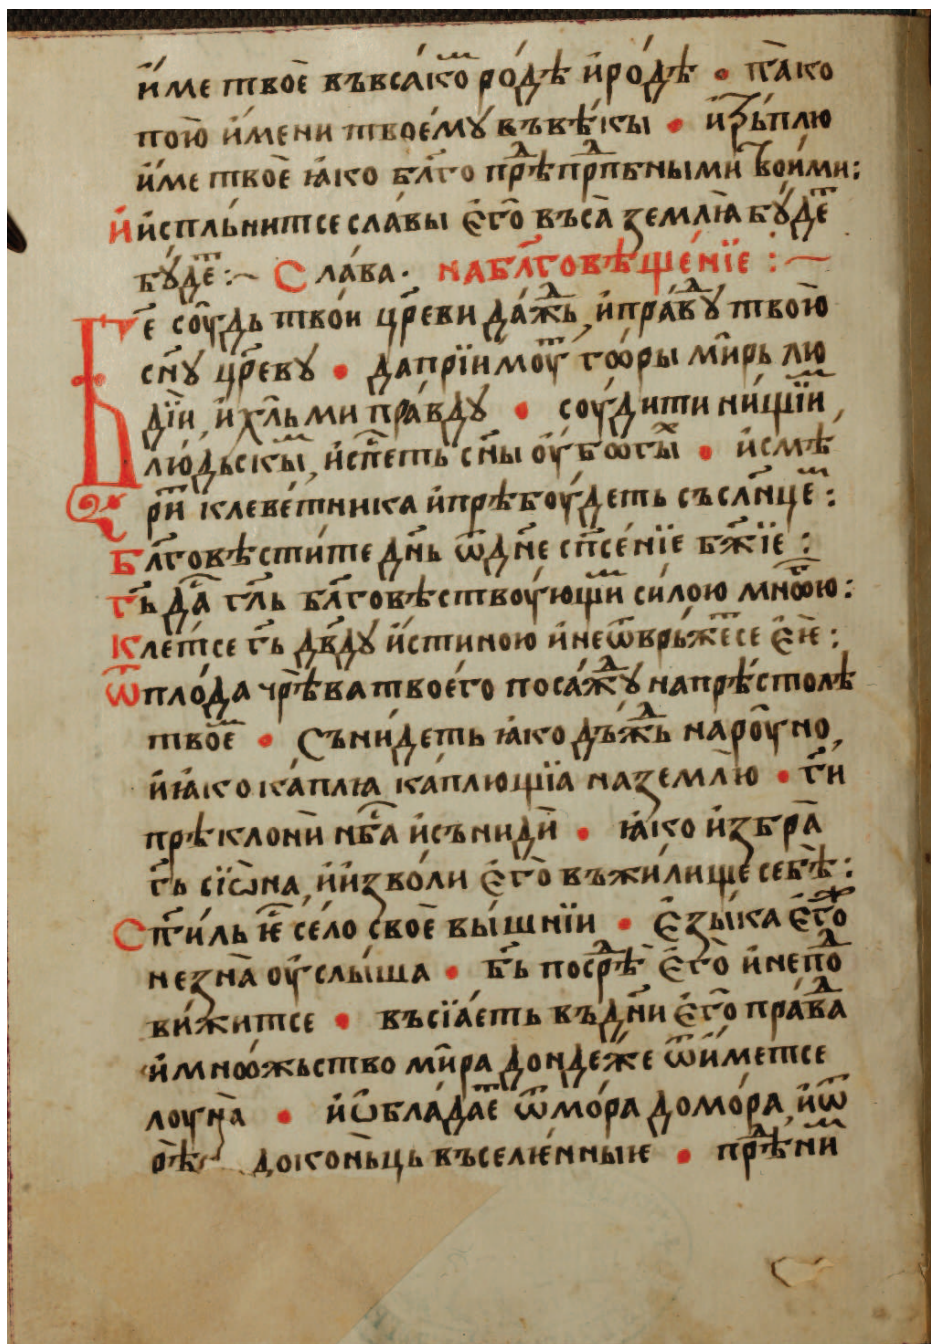 и҆́ме твоѐ въвса́ко҆ⷨ ро́дѣ и҆ро́дѣ • та́ко
пою̀ и҆́мени твое́мꙋ въвѣ́кы • и҆зⷣьплю
и҆́ме твоѐ ꙗ҆́ко бл҃го прⷣѣпрⷣпбными твои́ми :
И҆ и҆спль́нитсе сла́вы є҆гѡ̀ въса̀ землꙗ̀ бꙋ́деⷮ
бꙋ́деⷮ :~ Сла́ва · на бл҃говѣще́нїе :~
Бе҃ сѹ́дь твои цр҃еви да́жⷣь, и҆пра́вⷣꙋ твою̀
сн҃ꙋ цр҃евꙋ • даприи́моуⷮ го́ры ми́рь лю
дїи, и҆хль́ми пра́вдꙋ • соудити ни́щїиⷨ,
лю́дьскыⷨ, и҆сп҃сеть сн҃ы оу҆бѡгыⷯ • и҆смѣ
риⷮ клеве́тника и҆прѣбоу́деть съслн҃цеⷨ :
Бл҃говѣсти́те дн҃ь ѿдн҃е сп҃се́нїе бж҃їе :
Г҃ь да́ⷭ гл҃ь бл҃говѣствоу́ющиⷨ си́лою мно́гою :
Клеⷮсе г҃ь дв҃дꙋ и҆́стиною и҆неѿврь́жеⷮсе є҆ѐ :
Ѿпло́да чрѣ́ва твоего̀ поса́жⷣꙋ напрѣ́столѣ
твоеⷨ • Съни́деть ꙗ҆́ко дъ́жⷣь нароу̀но,
и҆ꙗ҆́ко ка́плꙗ ка́плющїа наземлю̀ • г҃и
прѣклонѝ нб҃са и҆съни́ди • ꙗ҆́ко и҆збра̀
г҃ь сїѡ̀на, и҆и҆зво́ли є҆го̀ въжили́ще себѣ̀ :
Сп҃тиль ѥ҆ⷭ се́ло своѐ вы́шнїи • є҆зы́ка є҆го́ⷤ
незна̀ оу҆слы́ша • бг҃ь посрⷣѣ̀ є҆го̀ и҆непоⷣ
ви́житсе • въсїа́еть въдн҃и є҆гѡ̀ пра́вⷣа
и҆мно́жьство ми́ра дондеже ѿи́метсе
лоуна̀ • и҆ѡ҆блада́еⷮ ѿмо́ра домо́ра, и҆ѿ
рѣ̀ доконь́ць въселѥ́нныѥ • прⷣѣ ниⷨ